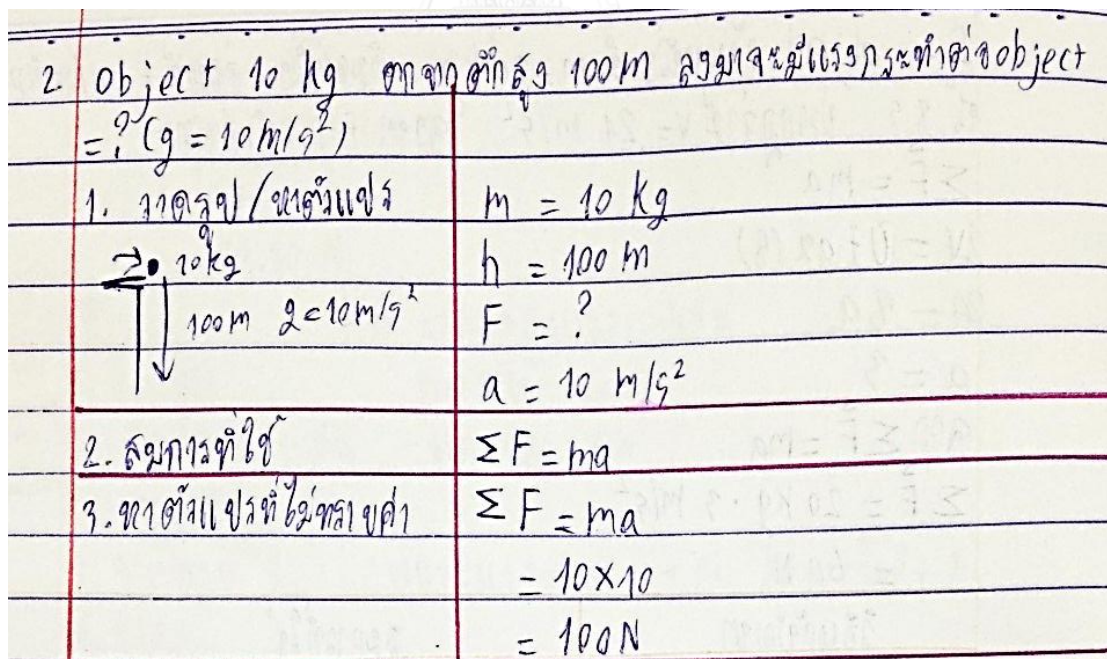 2 object 10 kg ตกจากตึกสูง 100 m ลงมาจะมีแรงกระทำต่อ object
= ? (g = 10 m/s²)
1. วาดรูป / หาตัวแปร
10 kg
100 m g = 10 m/s²
m = 10 kg
h = 100 m
F = ?
a = 10 m/s²
2. สมการที่ใช้ ΣF = ma
3. หาตัวแปรที่ไม่ทราบค่า ΣF = ma
= 10 × 10
= 100 N